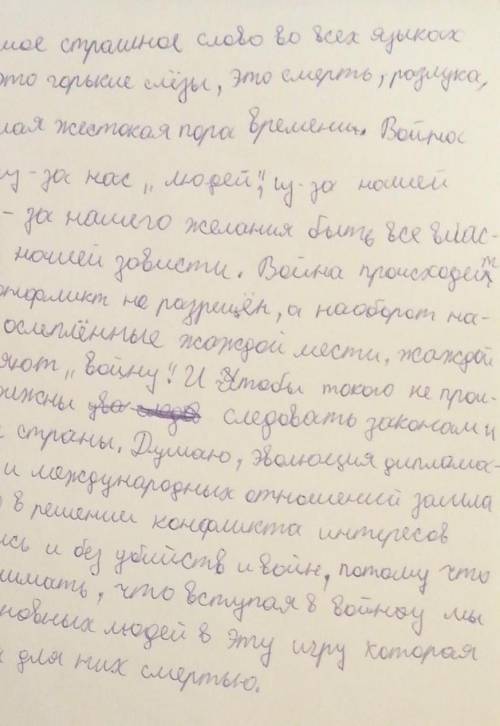 мое страшное слово во всех языках
это горькие слёзы, это смерть, разлука,
мая жестокая пора времени. Война
из-за нас „людей", из-за нашей
- за нашего желания быть все влас-
нашей зависти. Война происходит
онфликт не разрешён, а наоборот на-
ослеплённые жаждой мести, жаждой
яют „войну". И чтобы такого не прои-
лжны следовать законам и
страны. Думаю, эволюция диплома-
и международных отношений зашла
в решении конфликта интересов
ись и без убийств и войн, потому что
нимать, что вступая в войну мы
новных людей в эту игру которая
для них смертью.